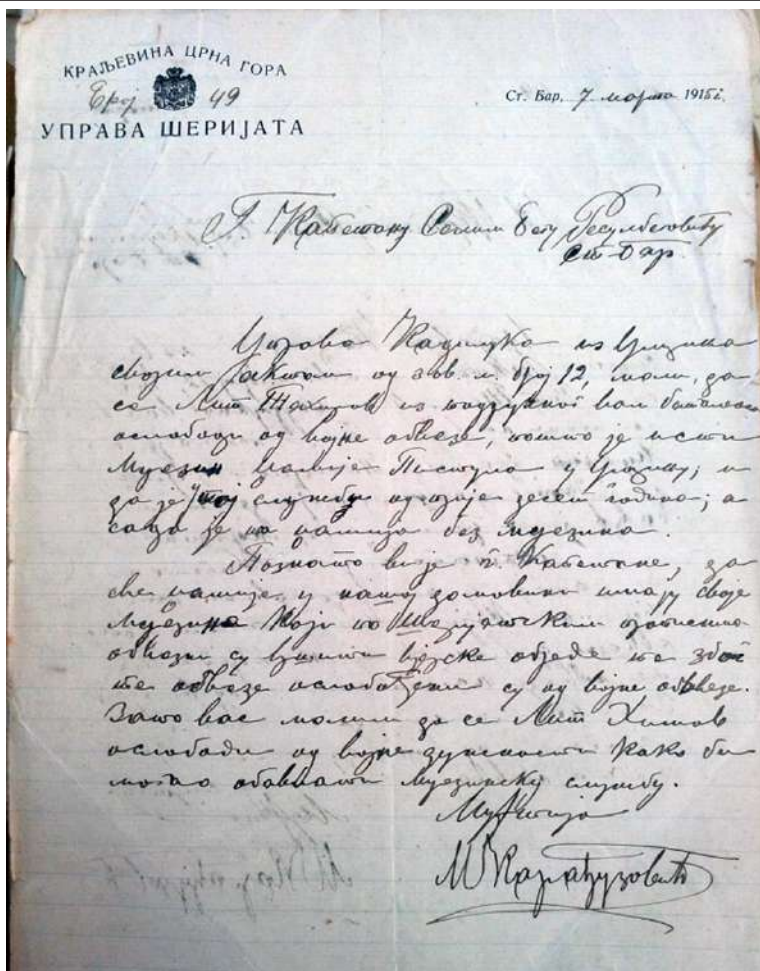 КРАЉЕВИНА ЦРНА ГОРА
Број 49
УПРАВА ШЕРИЈАТА
Ст. Бар, 7 марта 1915 г.
Г. Капетану Селим Бегу Ресулбеговићу
Ст-Бар.
Управа Кадилука из Улциња
својим актом од 3 ов. м. број 12, моли, да
се Мит из подручног вам батаљона
ослободи од војне обвезе, пошто је исти
Муезин џамије у Улцињу, и
да је у тој служби од прије десет година; а
сада је та џамија без муезина.
Познато ви је г. Капетане, да
све џамије у нашој домовини имају своје
муезине који по Шеријатским прописима
обвезни су вршити вјерске обреде те због
те обвезе ослобођени су од војне обвезе.
Зато вас молим да се Мит
ослободи од војне дужности како би
могао обављати муезинску службу.
Муфтија
М Карађузовић